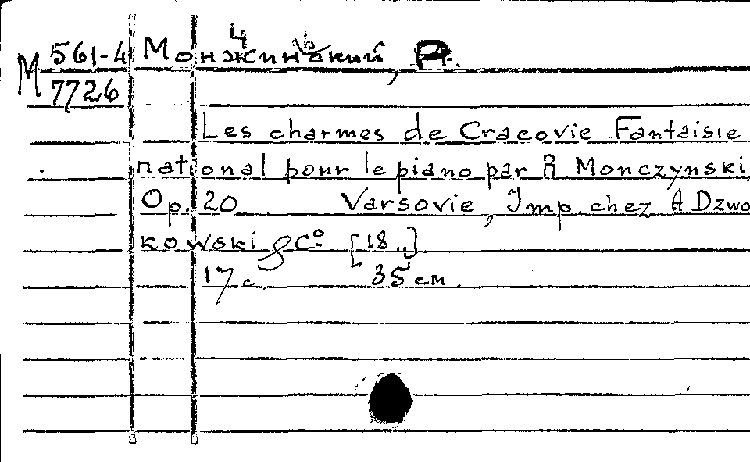 М 561-4 Мончиньский, Р.
7726
Les charmes de Cracovie Fantaisie
national pour le piano par R Monczynski
Op. 20 Varsovie, Imp chez A Dzwo
kowski & Cº [18..]
17 с. 35 см.